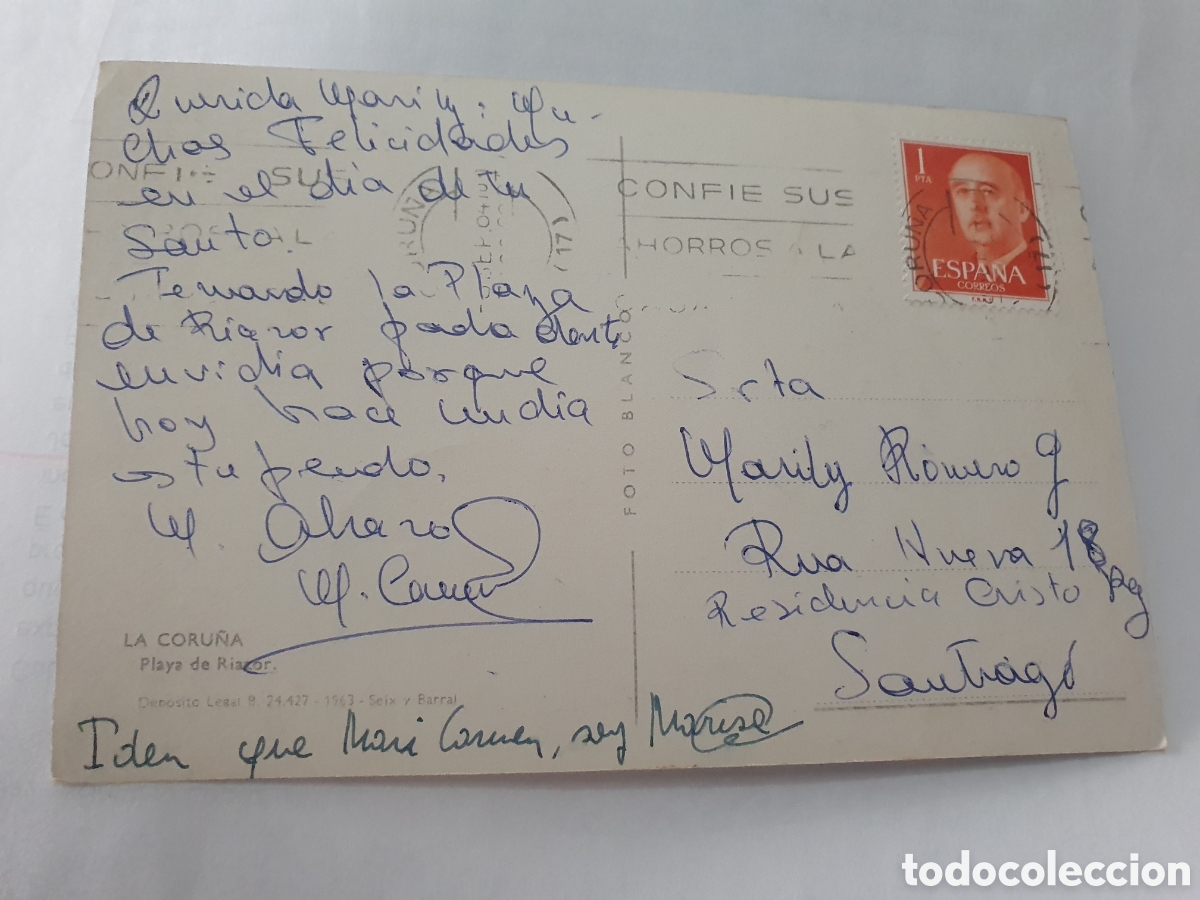 Querida Marily: Mu-
chas Felicidades
en el dia de tu
Santo.
la Playa
de Riazor
envidia porque
hoy hace un dia
estupendo.
M.
M. Carmen
LA CORUÑA
Playa de Riazor.
Deposito Legal B. 24.427 - 1963 - Seix y Barral
Iden que Mari Carmen, soy Marisa
FOTO BLANCO
CONFIE SUS
CONFIE SUS
AHORROS A LA
CORUÑA
17
1
PTA
ESPAÑA
CORREOS
F.N.M.T.
CORUÑA
17
Srta
Marily Romero G
Rua Nueva 18
Residencia Cristo Rey
Santiago
todocoleccion